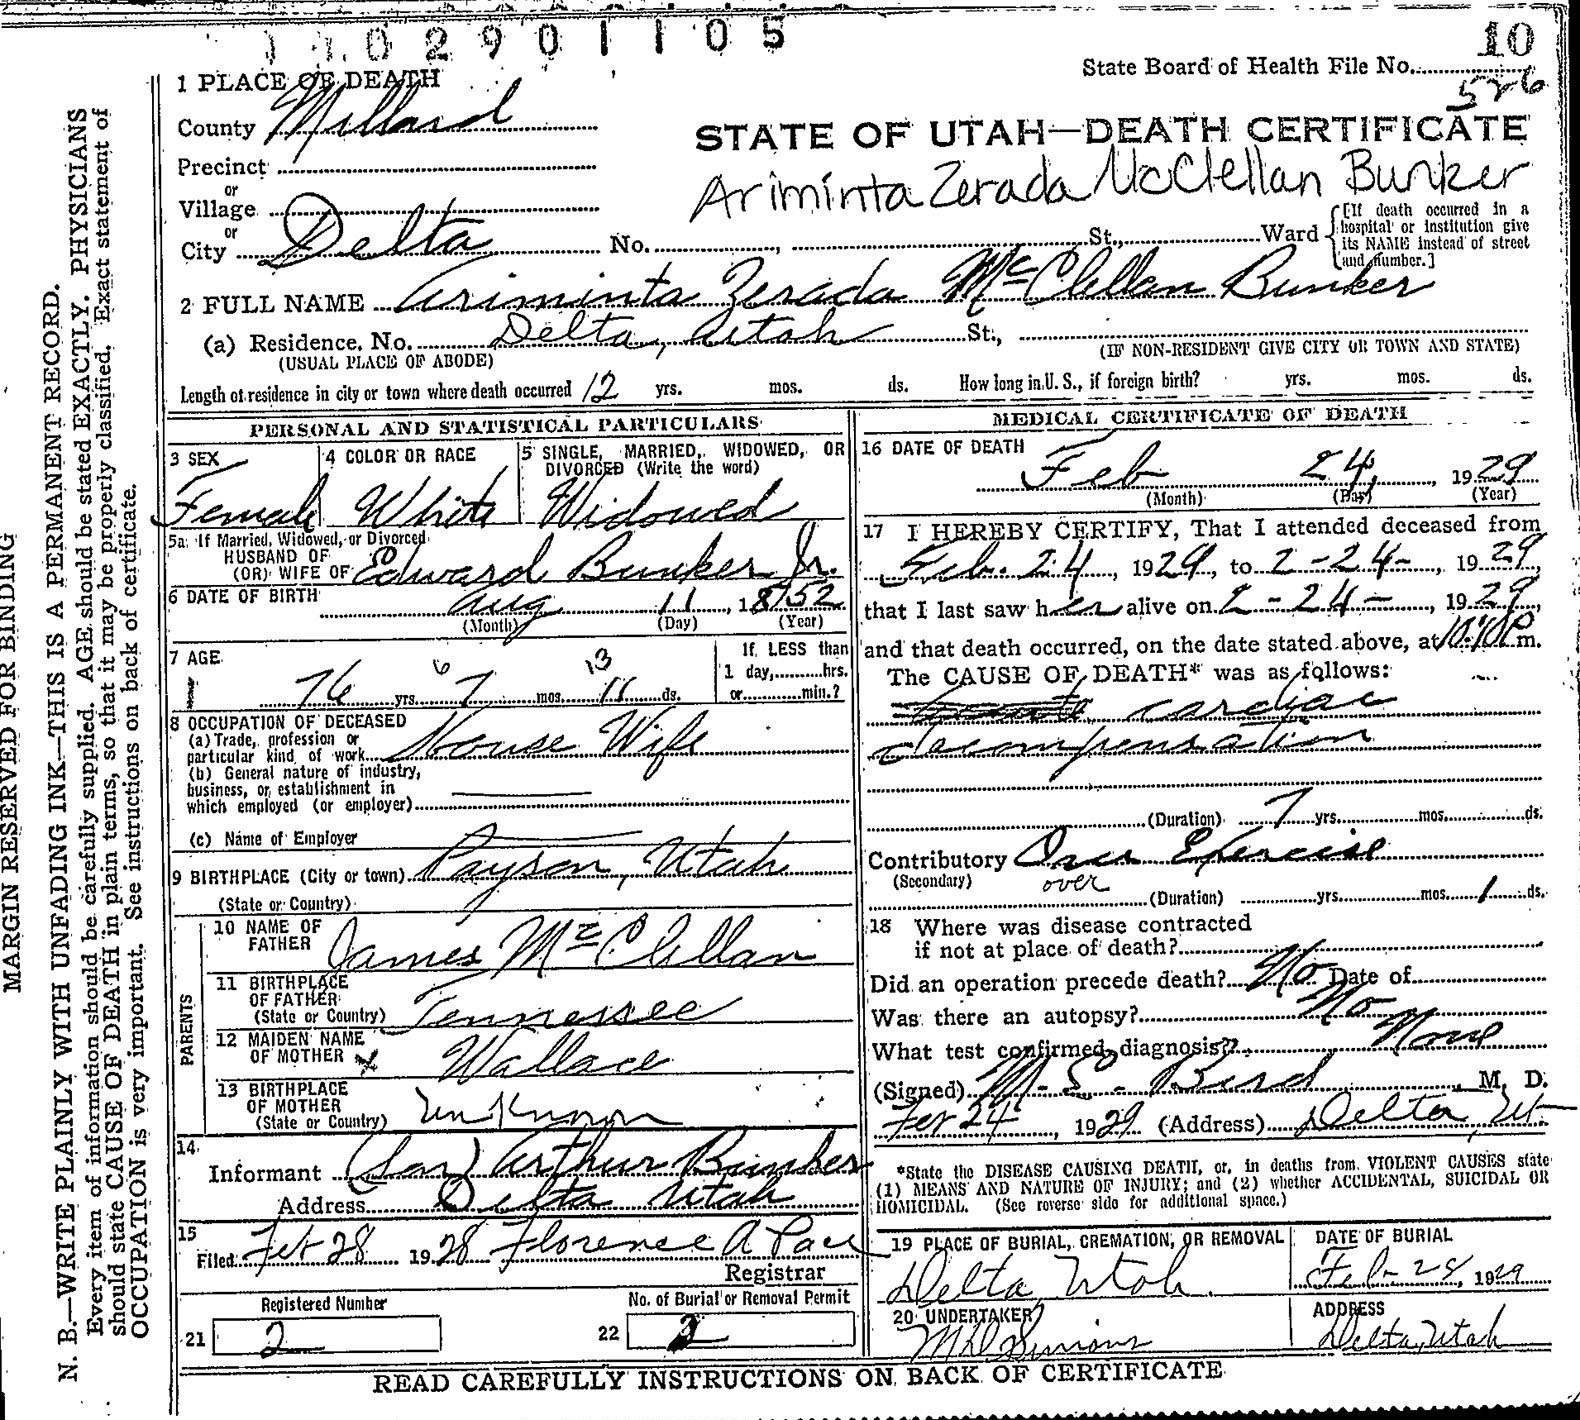 02901105
10
State Board of Health File No.
526
1 PLACE OF DEATH
County Millard
STATE OF UTAH—DEATH CERTIFICATE
Precinct
Ariminta Zerada McClellan Bunker
or
Village
or
City Delta No. , St., Ward
[If death occurred in a hospital or institution give its NAME instead of street and number.]
2 FULL NAME Ariminta Zerada McClellan Bunker
(a) Residence. No. Delta, Utah St.,
(USUAL PLACE OF ABODE) (IF NON-RESIDENT GIVE CITY OR TOWN AND STATE)
Length of residence in city or town where death occurred 12 yrs. mos. ds. How long in U. S., if foreign birth? yrs. mos. ds.
PERSONAL AND STATISTICAL PARTICULARS
3 SEX
Female
4 COLOR OR RACE
White
5 SINGLE, MARRIED, WIDOWED, OR DIVORCED (Write the word)
Widowed
5a If Married, Widowed, or Divorced
HUSBAND OF
(OR) WIFE OF Edward Bunker Jr.
6 DATE OF BIRTH Aug 11, 1852
(Month) (Day) (Year)
7 AGE
6 13
76 yrs. 7 mos. 11 ds.
If LESS than
1 day, hrs.
or min.?
8 OCCUPATION OF DECEASED
(a) Trade, profession or
particular kind of work House Wife
(b) General nature of industry,
business, or establishment in
which employed (or employer)
(c) Name of Employer
9 BIRTHPLACE (City or town) Payson, Utah
(State or Country)
PARENTS
10 NAME OF
FATHER James McClellan
11 BIRTHPLACE
OF FATHER
(State or Country) Tennessee
12 MAIDEN NAME
OF MOTHER x Wallace
13 BIRTHPLACE
OF MOTHER
(State or Country) Unknown
14
Informant (Son) Arthur Bunker
Address Delta Utah
15
Filed Feb 28 1928 Florence A Pace
Registrar
Registered Number
21 2
No. of Burial or Removal Permit
22 2
MEDICAL CERTIFICATE OF DEATH
16 DATE OF DEATH
Feb 24, 1929
(Month) (Day) (Year)
17 I HEREBY CERTIFY, That I attended deceased from
Feb. 24, 1929, to 2-24-, 1929,
that I last saw her alive on 2-24-, 1929,
and that death occurred, on the date stated above, at 10:10P m.
The CAUSE OF DEATH* was as follows:
cardiac
decompensation
(Duration) 7 yrs. mos. ds.
Contributory Over Exercise
(Secondary) over
(Duration) yrs. mos. 1 ds.
18 Where was disease contracted
if not at place of death?
Did an operation precede death? No Date of
Was there an autopsy? No
What test confirmed diagnosis? None
(Signed) M. E. Bird, M. D.
Feb 24, 1929 (Address) Delta, Ut
*State the DISEASE CAUSING DEATH, or, in deaths from VIOLENT CAUSES state
(1) MEANS AND NATURE OF INJURY; and (2) whether ACCIDENTAL, SUICIDAL OR
HOMICIDAL. (See reverse side for additional space.)
19 PLACE OF BURIAL, CREMATION, OR REMOVAL
Delta, Utah.
DATE OF BURIAL
Feb 28, 1929
20 UNDERTAKER
ADDRESS
Delta, Utah
READ CAREFULLY INSTRUCTIONS ON BACK OF CERTIFICATE
MARGIN RESERVED FOR BINDING
N. B.—WRITE PLAINLY WITH UNFADING INK—THIS IS A PERMANENT RECORD.
Every item of information should be carefully supplied. AGE should be stated EXACTLY. PHYSICIANS
should state CAUSE OF DEATH in plain terms, so that it may be properly classified. Exact statement of
OCCUPATION is very important. See instructions on back of certificate.